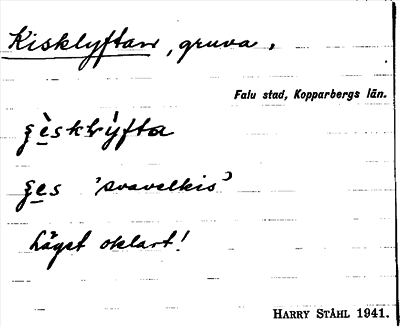 Kisklyftan, gruva.
Falu stad, Kopparbergs län.
ʒèsklýfta
ʒes 'svavelkis'
Läget oklart!
HARRY STÅHL 1941.